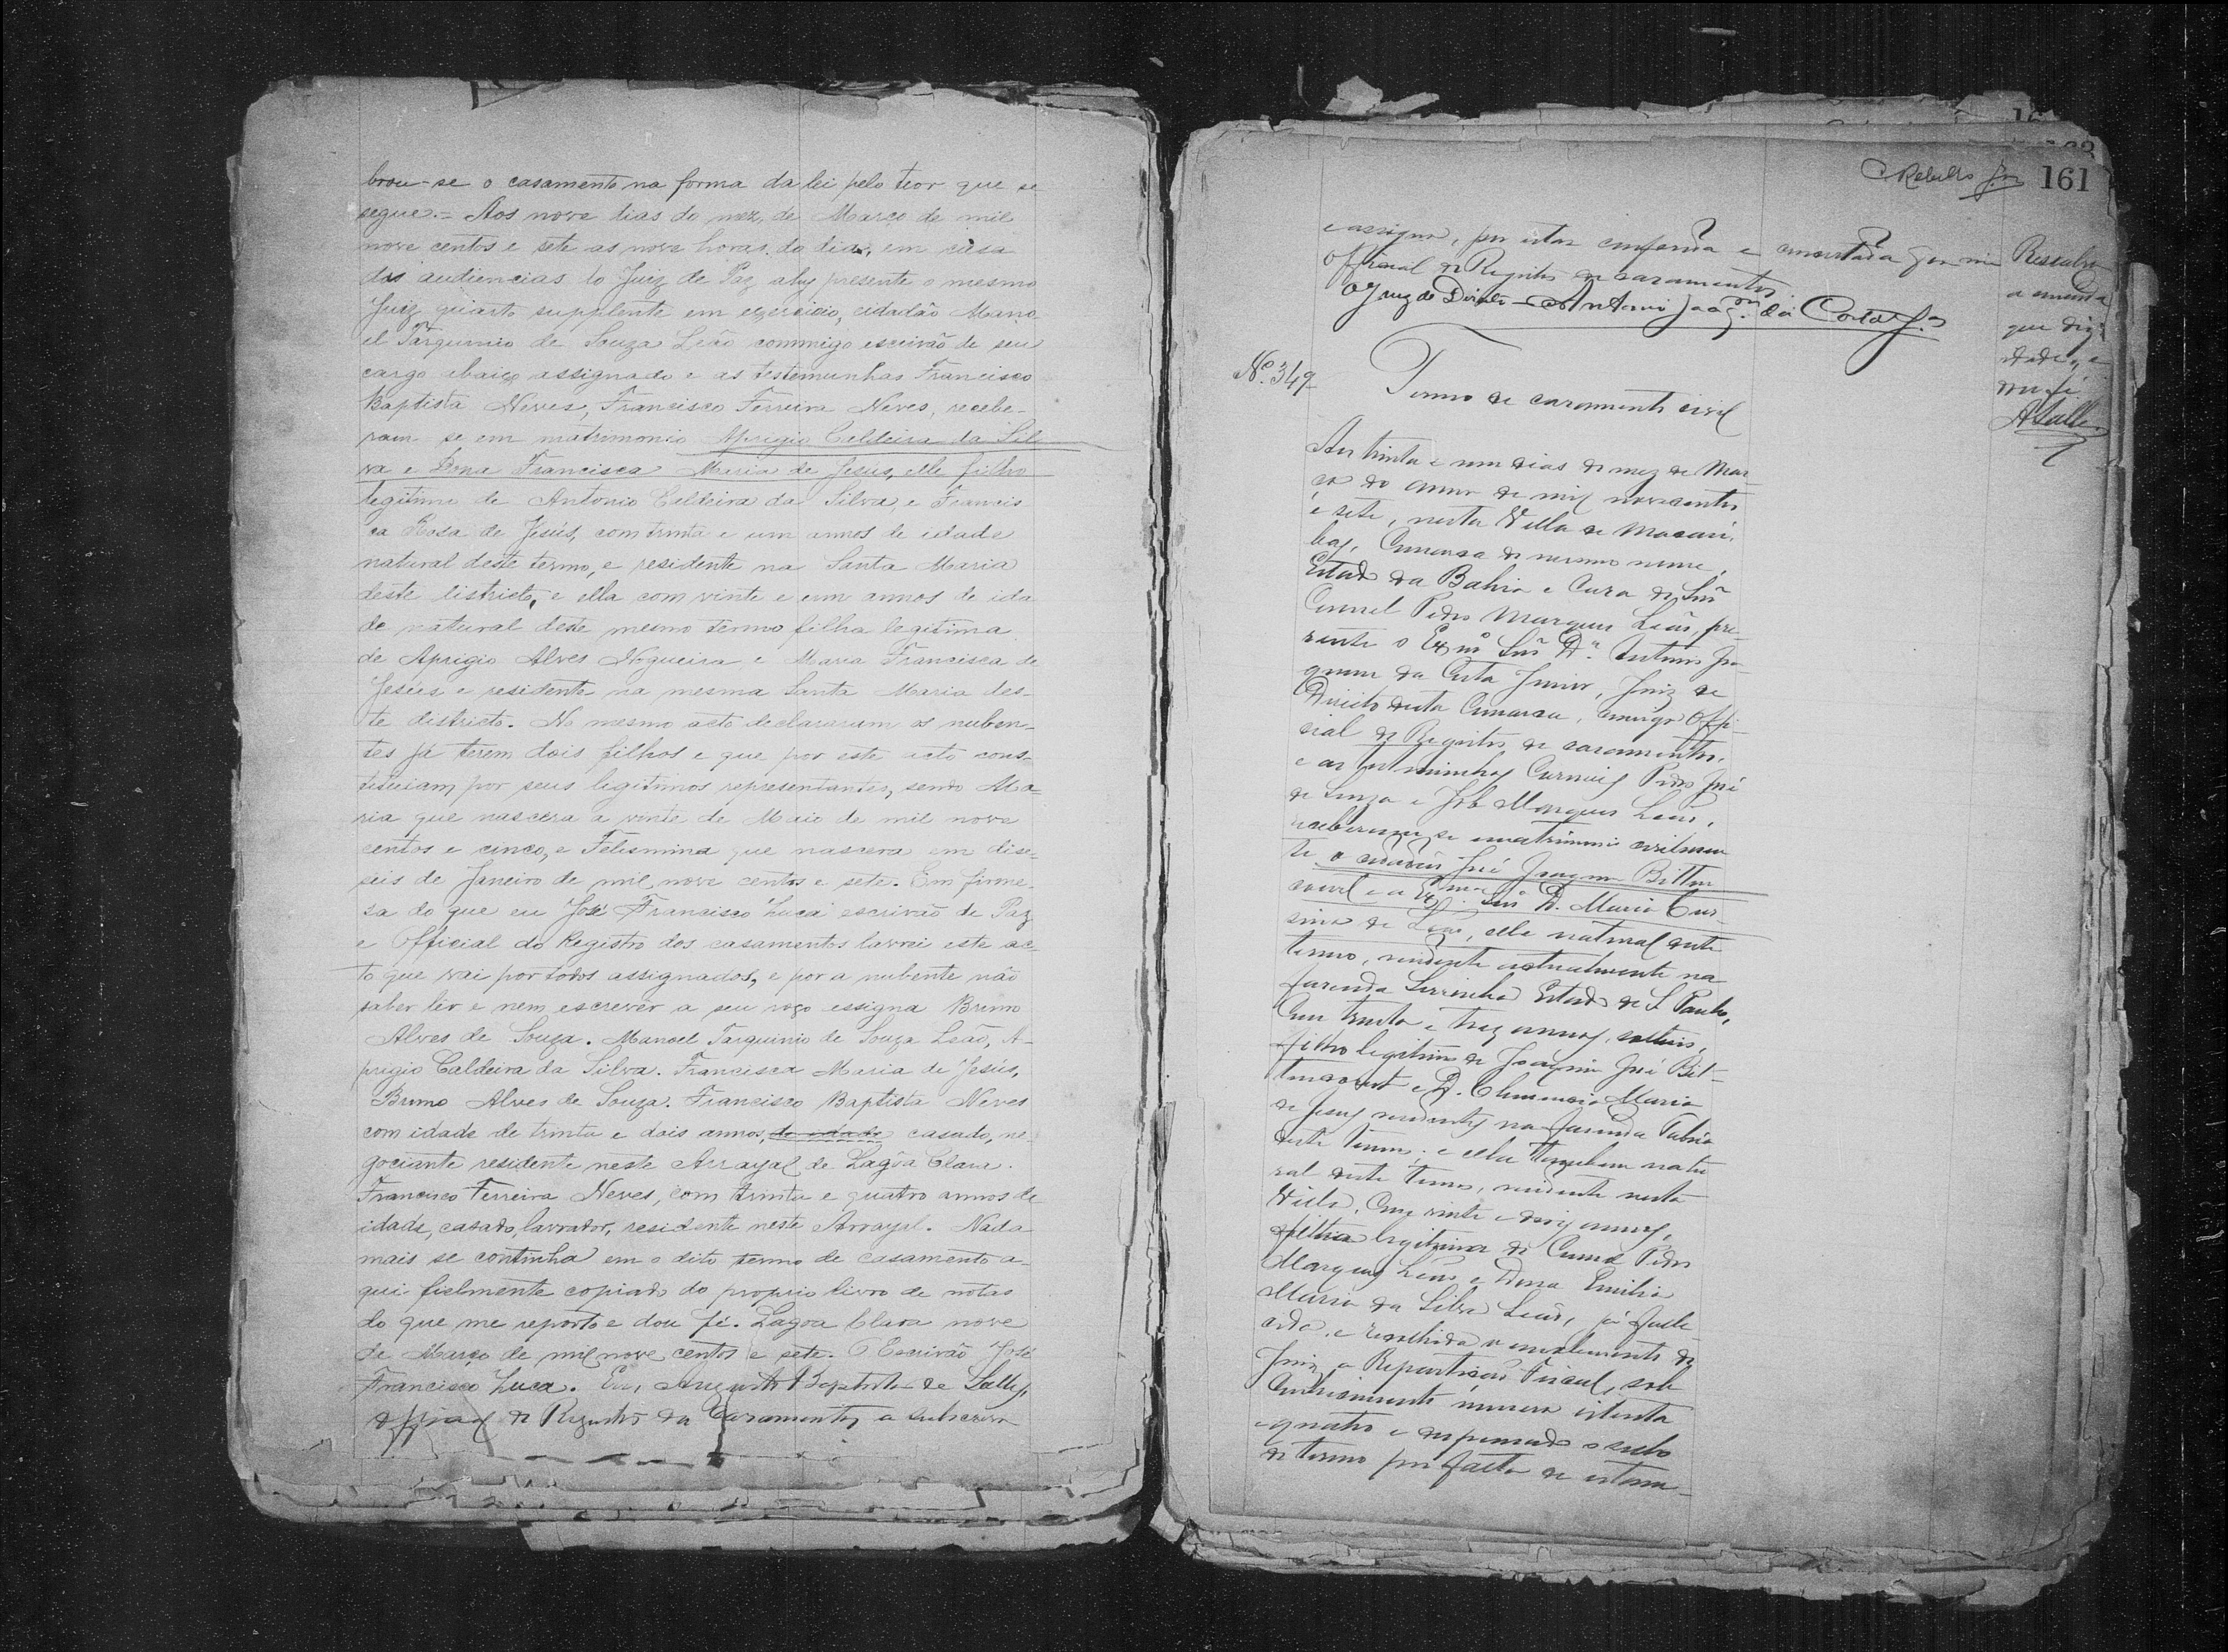 brou-se o casamento na forma da lei pelo teor que se
segue.- Aos nove dias do mez, de Março de mil
nove centos e sete as nove horas do dia, em casa
das audiencias do Juiz de Paz ahy presente o mesmo
Juiz quarto supplente em exercicio, cidadão Mano
el Tarquinio de Souza Leão commigo escrivão de seu
cargo abaixo assignado e as testemunhas Francisco
Baptista Neves, Francisco Ferreira Neves, recebe-
ram se em matrimonio Aprigio Caldeira da Sil
va e Dona Francisca Maria de Jesús, elle filho
legitimo de Antonio Caldeira da Silva, e Francis
ca Rosa de Jesús, com trinta e um annos de idade
natural deste termo, e residente na Santa Maria
deste districto, e ella com vinte e um annos de ida
de natural deste mesmo termo filha legitima
de Aprigio Alves Nogueira e Maria Francisca de
Jesús e residente na mesma Santa Maria des-
te districto. No mesmo acto declararam os nuben-
tes já terem dois filhos e que por este acto cons-
tituiam por seus legitimos representantes, sendo Ma-
ria que nascera a vinte de Maio de mil nove
centos e cinco, e Felismina que nascera em dise-
seis de Janeiro de mil nove centos e sete. Em firme-
sa do que eu José Francisco Luca escrivão de Paz
e Official do Registro dos casamentos lavrei este ac-
to que vai por todos assignados, e por a nubente não
saber ler e nem escrever a seu rogo assigna Bruno
Alves de Souza. Manoel Tarquinio de Souza Leão, A-
prigio Caldeira da Silva. Francisca Maria de Jesús,
Bruno Alves de Souza. Francisco Baptista Neves
com idade de trinta e dois annos, de idade casado, ne-
gociante residente neste Arrayal de Lagôa Clara.
Francisco Ferreira Neves, com trinta e quatro annos de
idade, casado, lavrador, residente neste Arrayal. Nada
mais se continha em o dito termo de casamento a-
qui fielmente copiado do proprio livro de notas
do que me reporto e dou fé. Lagoa Clara nove
de Março de mil nove centos e sete. O Escrivão José
Francisco Luca. Eu, Augusto Baptista de Salles,
official do Registro de Casamentos, a subscrevo
161
e assigno, por estar conferida e concertada por mim
Official do Registro de casamentos.
O Juiz de Direito Antonio Joaqm. da Costa Jor
Resalvo
a emenda
que diz
idade, e
dou fé.
ASalles
No. 349
Termo de casamento civil
Aos trinta e um dias do mez de Mar
ço do anno de mil novecentos
e sete, nesta Villa de Macaú-
bas, Comarca do mesmo nome,
Estado da Bahia e Casa do Snr
Coronel Pedro Marques Leão, pre-
sente o Exmo Snr Dr. Antonio Jo-
aquim da Costa Junior, Juiz de
Direito desta Comarca, comigo Offi-
cial do Registro de casamentos,
e as testemunhas Coroneis Pedro José
de Souza e Job Marques Leão,
receberam se em matrimonio civilmen
te o cidadão José Joaquim Bitten
court e a Exma. Snra D. Maria
de Leão, elle natural deste
termo, residente actualmente na
fazenda Serrinha Estado de S. Paulo,
Com trinta e trez annos, solteiro,
filho legitimo de Joaquim José Bit-
tencourt e D. Clemencia Maria
de Jesus residentes na fazenda
deste termo; e ella tambem natu
ral deste termo, residente nesta
Villa, Com vinte e dois annos,
filha legitima do Coronel Pedro
Marques Leão e Dona Emilia
Maria da Silva Leão, já falle-
cida, e recolhido o emolumento do
Juiz a Repartição Fiscal, sob
Conhecimento numero
e quatro e dispensado o sello
do termo por falta de estam-